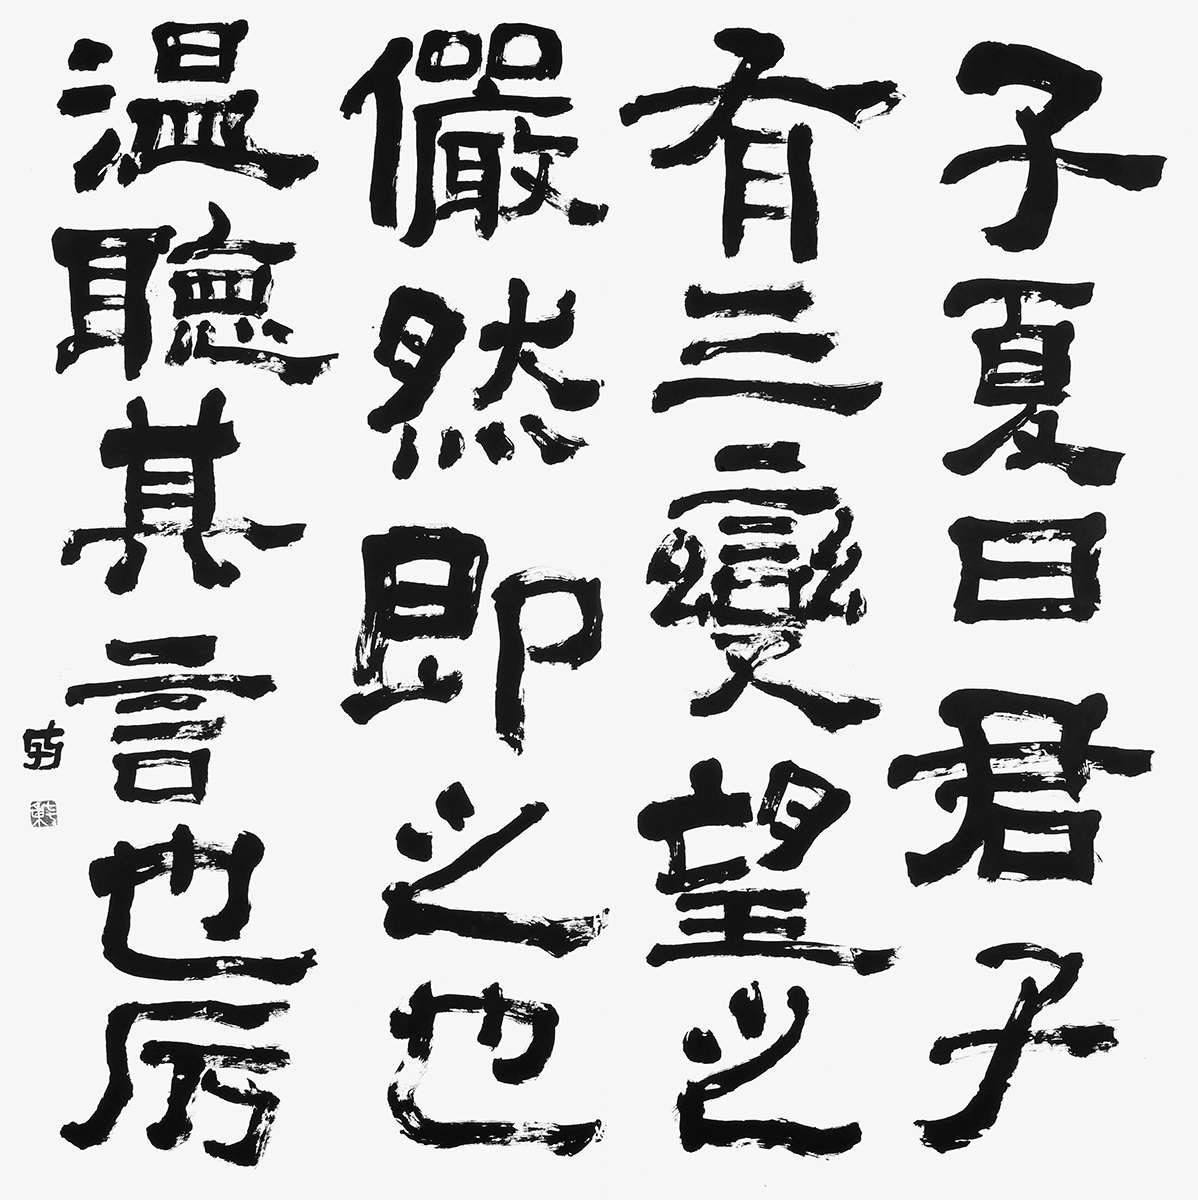 子夏曰君子
有三變望之
儼然即之也
温聽其言也厉